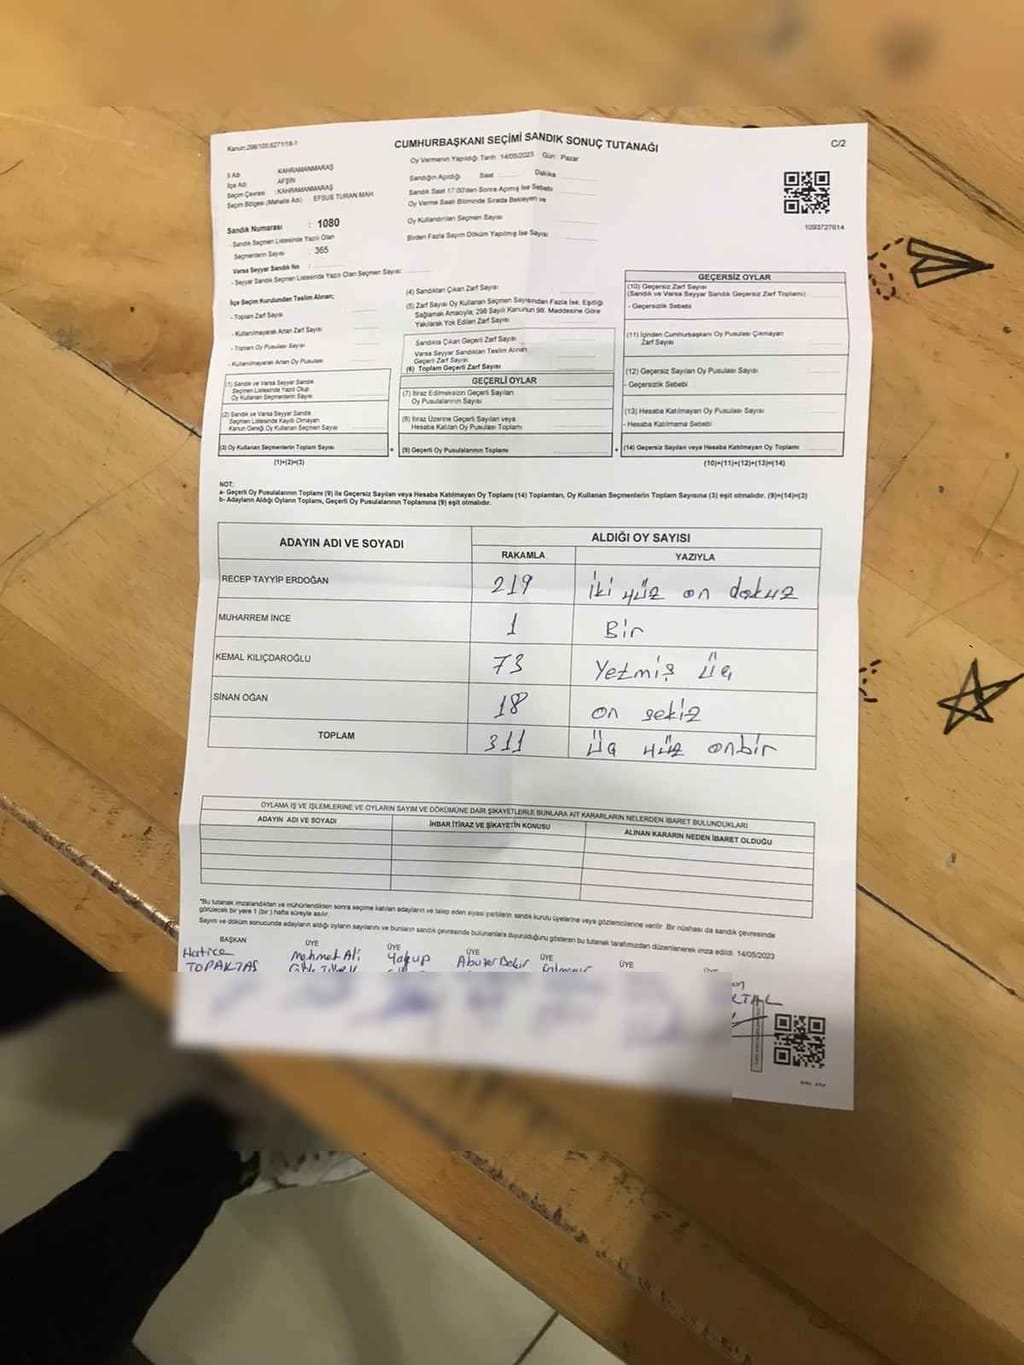 Kanun:298/100,6271/18-1
CUMHURBAŞKANI SEÇİMİ SANDIK SONUÇ TUTANAĞI
C/2
Oy Vermenin Yapıldığı Tarih :14/05/2023 Gün : Pazar
İl Adı : KAHRAMANMARAŞ
İlçe Adı : AFŞİN
Seçim Çevresi : KAHRAMANMARAŞ
Seçim Bölgesi (Mahalle Adı) : EFSUS TURAN MAH.
Sandık Numarası : 1080
- Sandık Seçmen Listesinde Yazılı Olan
Seçmenlerin Sayısı : 365
Varsa Seyyar Sandık No :
- Seyyar Sandık Seçmen Listesinde Yazılı Olan Seçmen Sayısı:
Sandığın Açıldığı Saat Dakika
Sandık Saat 17:00'den Sonra Açılmış İse Sebebi
Oy Verme Saati Bitiminde Sırada Bekleyen ve
Oy Kullandırılan Seçmen Sayısı
Birden Fazla Sayım Döküm Yapılmış İse Sayısı
1093727614
İlçe Seçim Kurulundan Teslim Alınan;
- Toplam Zarf Sayısı
- Kullanılmayarak Artan Zarf Sayısı
- Toplam Oy Pusulası Sayısı
- Kullanılmayarak Artan Oy Pusulası
(1) Sandık ve Varsa Seyyar Sandık
Seçmen Listesinde Yazılı Olup
Oy Kullanan Seçmenlerin Sayısı
(2) Sandık ve Varsa Seyyar Sandık
Seçmen Listesinde Kayıtlı Olmayan
Kanun Gereği Oy Kullanan Seçmen Sayısı
(3) Oy Kullanan Seçmenlerin Toplam Sayısı
(1)+(2)=(3)
(4) Sandıktan Çıkan Zarf Sayısı
(5) Zarf Sayısı Oy Kullanan Seçmen Sayısından Fazla İse, Eşitliği
Sağlamak Amacıyla; 298 Sayılı Kanunun 98. Maddesine Göre
Yakılarak Yok Edilen Zarf Sayısı
Sandıkta Çıkan Geçerli Zarf Sayısı
Varsa Seyyar Sandıktan Teslim Alınan
Geçerli Zarf Sayısı
(6) Toplam Geçerli Zarf Sayısı
GEÇERLİ OYLAR
(7) İtiraz Edilmeksizin Geçerli Sayılan
Oy Pusulalarının Sayısı
(8) İtiraz Üzerine Geçerli Sayılan veya
Hesaba Katılan Oy Pusulası Toplamı
= (9) Geçerli Oy Pusulalarının Toplamı
GEÇERSİZ OYLAR
(10) Geçersiz Zarf Sayısı
(Sandık ve Varsa Seyyar Sandık Geçersiz Zarf Toplamı)
- Geçersizlik Sebebi
(11) İçinden Cumhurbaşkanı Oy Pusulası Çıkmayan
Zarf Sayısı
(12) Geçersiz Sayılan Oy Pusulası Sayısı
- Geçersizlik Sebebi
(13) Hesaba Katılmayan Oy Pusulası Sayısı
- Hesaba Katılmama Sebebi
+ (14) Geçersiz Sayılan veya Hesaba Katılmayan Oy Toplamı
(10)+(11)+(12)+(13)=(14)
NOT:
a- Geçerli Oy Pusulalarının Toplamı (9) ile Geçersiz Sayılan veya Hesaba Katılmayan Oy Toplamı (14) Toplamları, Oy Kullanan Seçmenlerin Toplam Sayısına (3) eşit olmalıdır. (9)+(14)=(3)
b- Adayların Aldığı Oyların Toplamı, Geçerli Oy Pusulalarının Toplamına (9) eşit olmalıdır.
ADAYIN ADI VE SOYADI ALDIĞI OY SAYISI
RAKAMLA YAZIYLA
RECEP TAYYİP ERDOĞAN 219 iki yüz on dokuz
MUHARREM İNCE 1 Bir
KEMAL KILIÇDAROĞLU 73 Yetmiş üç
SİNAN OĞAN 18 on sekiz
TOPLAM 311 üç yüz onbir
OYLAMA İŞ VE İŞLEMLERİNE VE OYLARIN SAYIM VE DÖKÜMÜNE DAİR ŞİKAYETLERLE BUNLARA AİT KARARLARIN NELERDEN İBARET BULUNDUKLARI
ADAYIN ADI VE SOYADI İHBAR İTİRAZ VE ŞİKAYETİN KONUSU ALINAN KARARIN NEDEN İBARET OLDUĞU
*Bu tutanak imzalandıktan ve mühürlendikten sonra seçime katılan adayların ve talep eden siyasi partilerin sandık kurulu üyelerine veya gözlemcilerine verilir .Bir nüshası da sandık çevresinde
görülecek bir yere 1 (bir ) hafta süreyle asılır.
Sayım ve döküm sonucunda adayların aldığı oyların sayılarını ve bunların sandık çevresinde bulunanlara duyurulduğunu gösteren bu tutanak tarafımızdan düzenlenerek imza edildi. 14/05/2023
BAŞKAN ÜYE ÜYE ÜYE ÜYE ÜYE
Hatice Mehmet Ali Yakup
TOPAKTAŞ